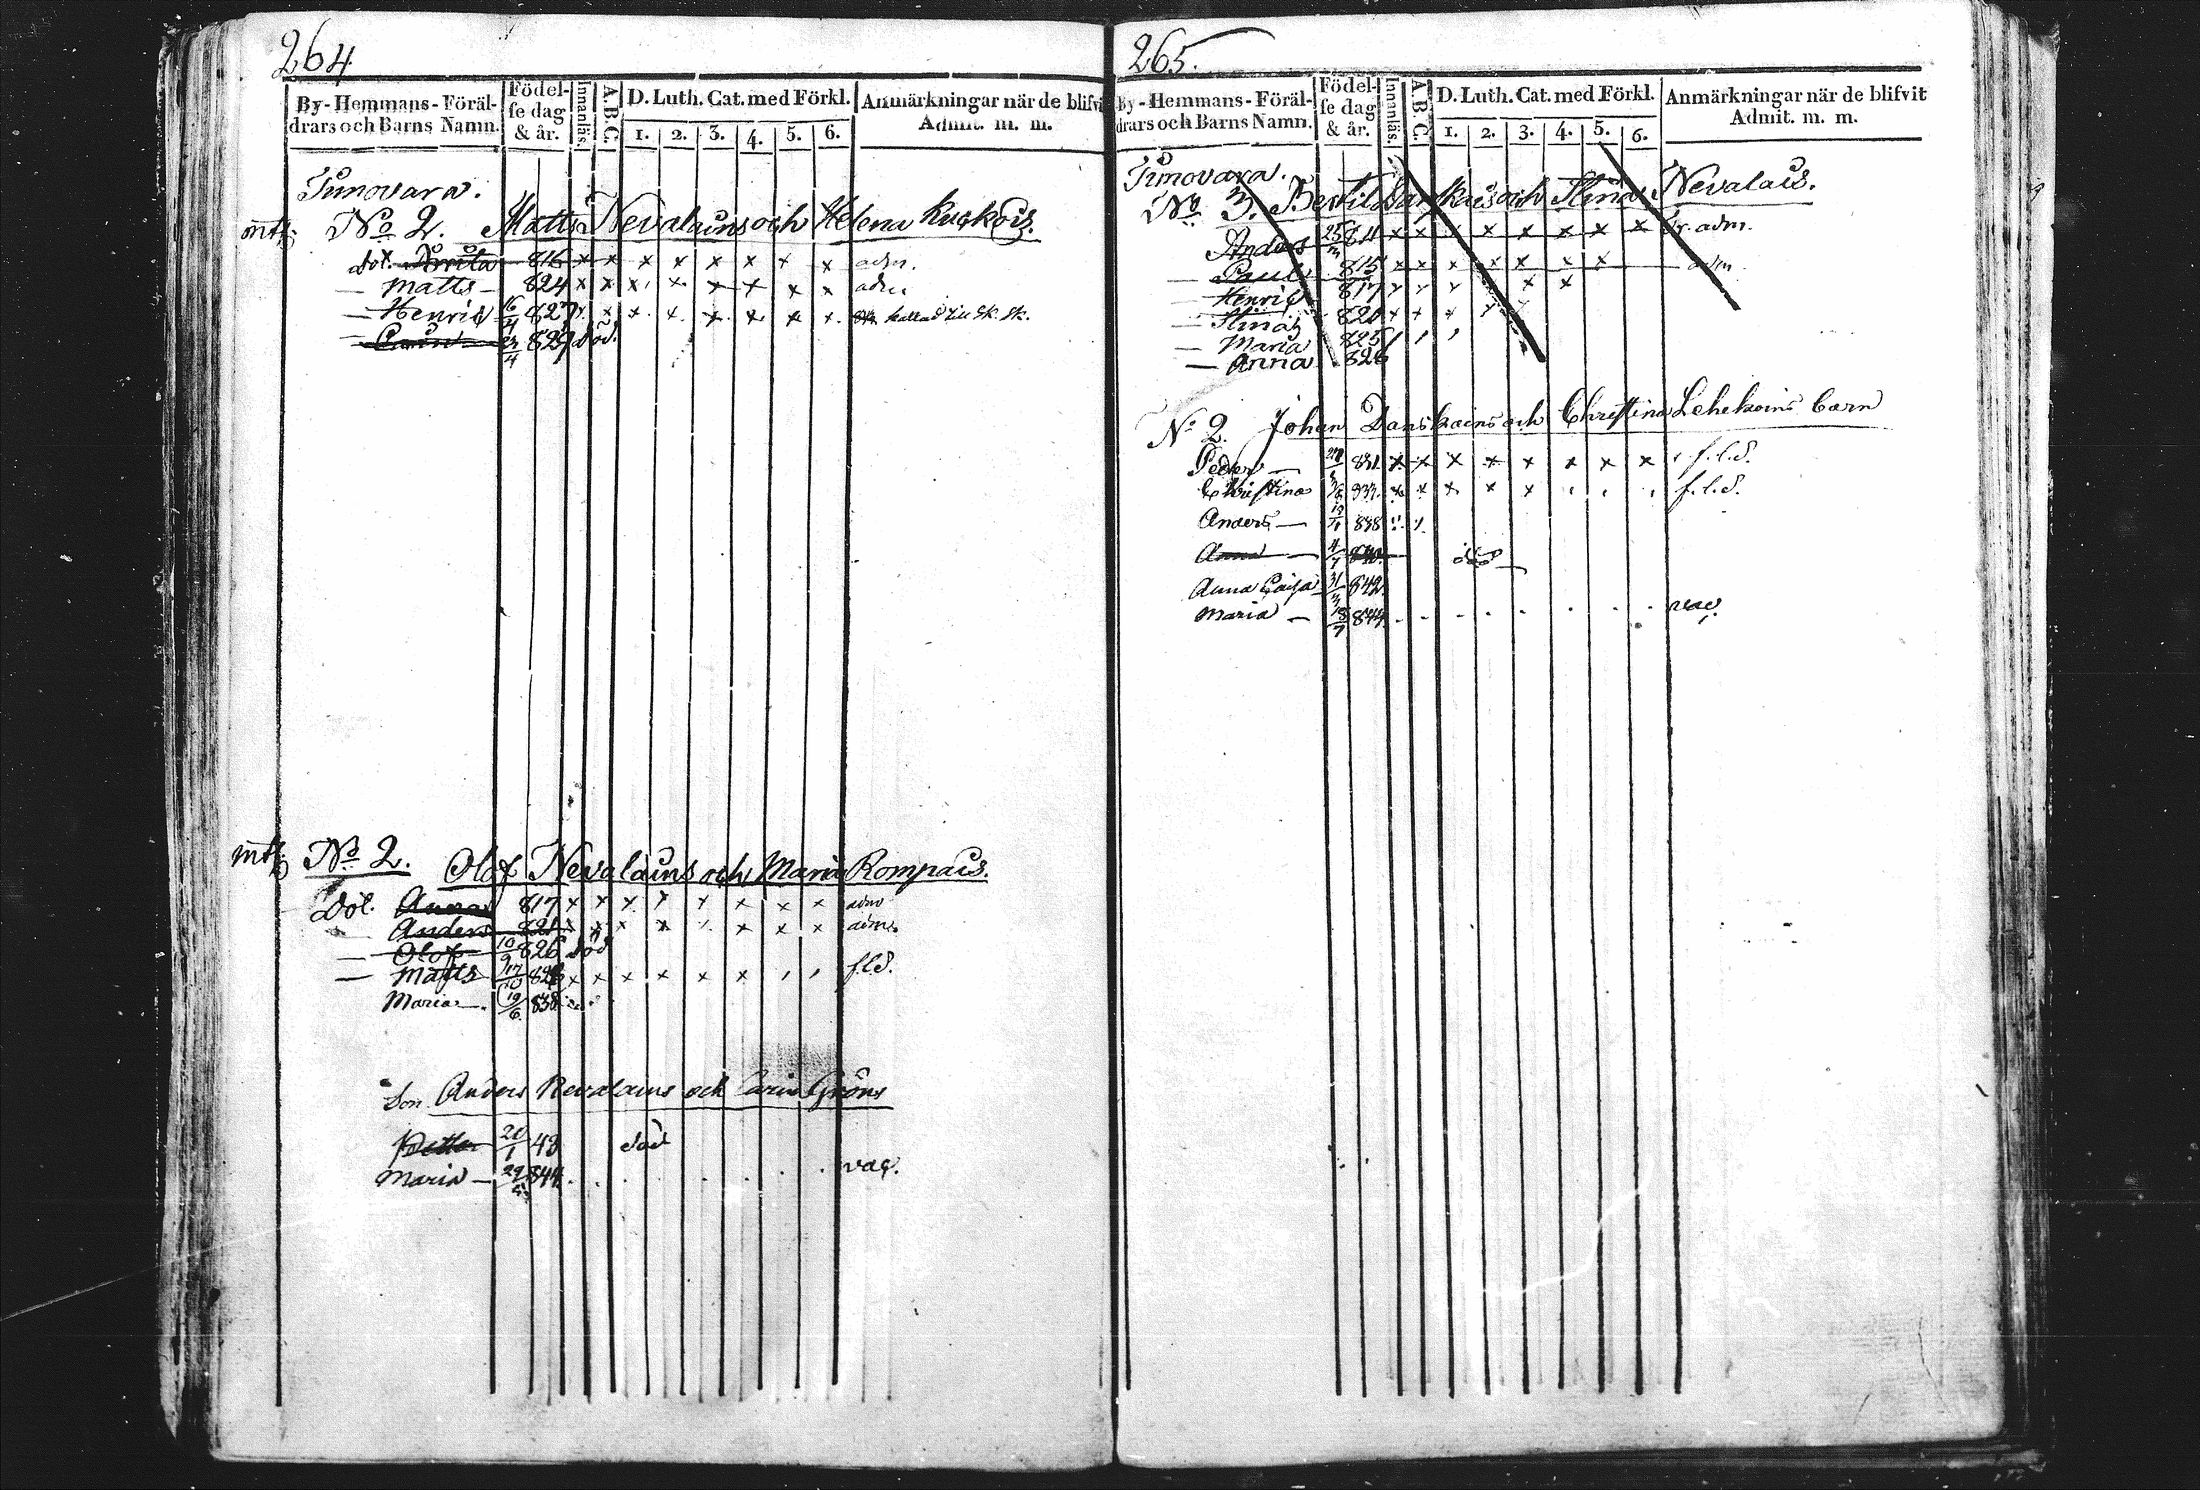 264.
By-Hemmans-Föräl-
drars och Barns Namn.
Födel-
se dag
& år.
Innanläs.
A.B.C.
D. Luth. Cat. med Förkl.
1. 2. 3. 4. 5. 6.
Anmärkningar när de blifvit
Admit. m. m.
Timovara.
No 2. Matts Nevalains och Helena Kuckois.
dot. Brita 816 x x x x x x x x adm.
— Matts — 824 x x x x x x x x adm
— Henric 16/4 827 x x x x x x x x kallad till Sk. Sk.
829 död.
No 2. Olof Nevalains och Maria Rompais.
Dot. Anna 817 x x x x x x x x adm
— Anders 821 x x x x x x x x adm.
— Olof 10/9 826 död
— Matts 17/10 828 x x x x x x , , f.l.d.
Maria —. 19/6 838
Son. Anders Nevalains och Carin Gröns
Petter 20/1 43 död
Maria — 29 844 vac.
265.
By-Hemmans-Föräl-
drars och Barns Namn.
Födel-
se dag
& år.
Innanläs.
A.B.C.
D. Luth. Cat. med Förkl.
1. 2. 3. 4. 5. 6.
Anmärkningar när de blifvit
Admit. m. m.
Timovara.
No 3. Bertil Danskais och Stina Nevalais.
Anders 25 811 x x x x x x x x Fr. adm.
— Paul 815 x x x x x x x adm
— Henric 817
— Stina 820
— Maria 825
— Anna 826
No 2. Johan Danskains och Christina Lehekoins barn
Peder — 831 x x x x x x x x f.l.d.
Christina x x x x x f.l.d.
Anders — 838
Anna — 4/7 840. död
Anna Caisa 31 842
Maria — 18/7 844. vac.